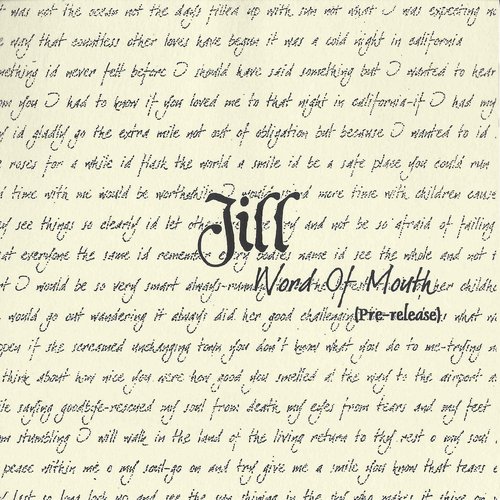 it was not the ocean not the days filled up with sun not what I was expecting
way that countless other loves have begun it was a cold night in california
something id never felt before I should have said something but I wanted to hear
you I had to know if you loved me to that night in california-if I had my
id gladly go the extra mile not out of obligation but because I wanted to id
roses for a while id flash the world a smile id be a safe place you could run
time with me would be worthwhile I would spend more time with children cause
see things so clearly id let others and not be so afraid of failing
at everyone the same id remember every bodies name id see the whole and not
Jill
I would be so very smart always-running her
Word Of Mouth
would go out wandering it always did her good challenging what
(Pre-release)
if she screamed unchanging town you don't know what you do to me-trying
think about how nice you were how good you smelled at the way to the airport
saying goodbye-rescued my soul from death my eyes from tears and my feet
stumbling I will walk in the land of the living return to thy rest o my soul
peace within me o my soul-go on and try give me a smile you know that tears
last so long look up and see the sun shining in the sky who makes it shine on